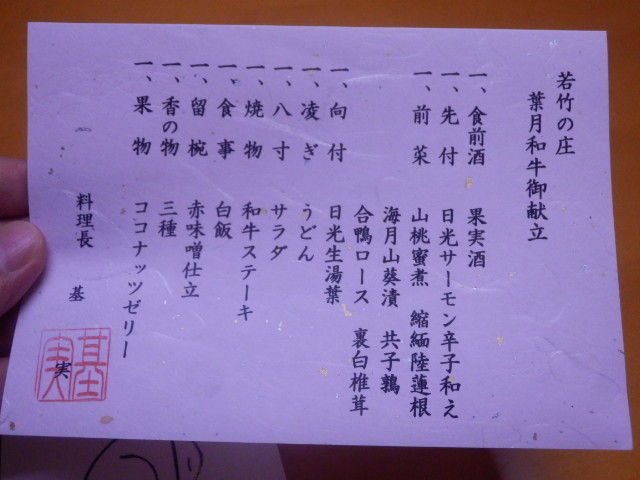 若竹の庄
葉月和牛御献立
一、食前酒　果実酒
一、先付　日光サーモン辛子和え
一、前菜　山桃蜜煮　縮緬陸蓮根
海月山葵漬　共子鶉
合鴨ロース　裏白椎茸
一、向付　日光生湯葉
一、凌ぎ　うどん
一、八寸　サラダ
一、焼物　和牛ステーキ
一、食事　白飯
一、留椀　赤味噌仕立
一、香の物　三種
一、果物　ココナッツゼリー
料理長　基　実
基実